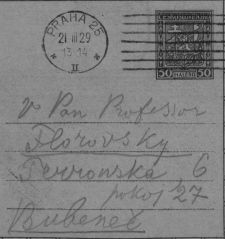 PRAHA 25
21 III 29
13-14
* II *
ČESKOSLOVENSKO
50 HALÉŘŮ 50
Pan Professor
Florovsky
6
pokoj 27
Bubeneč